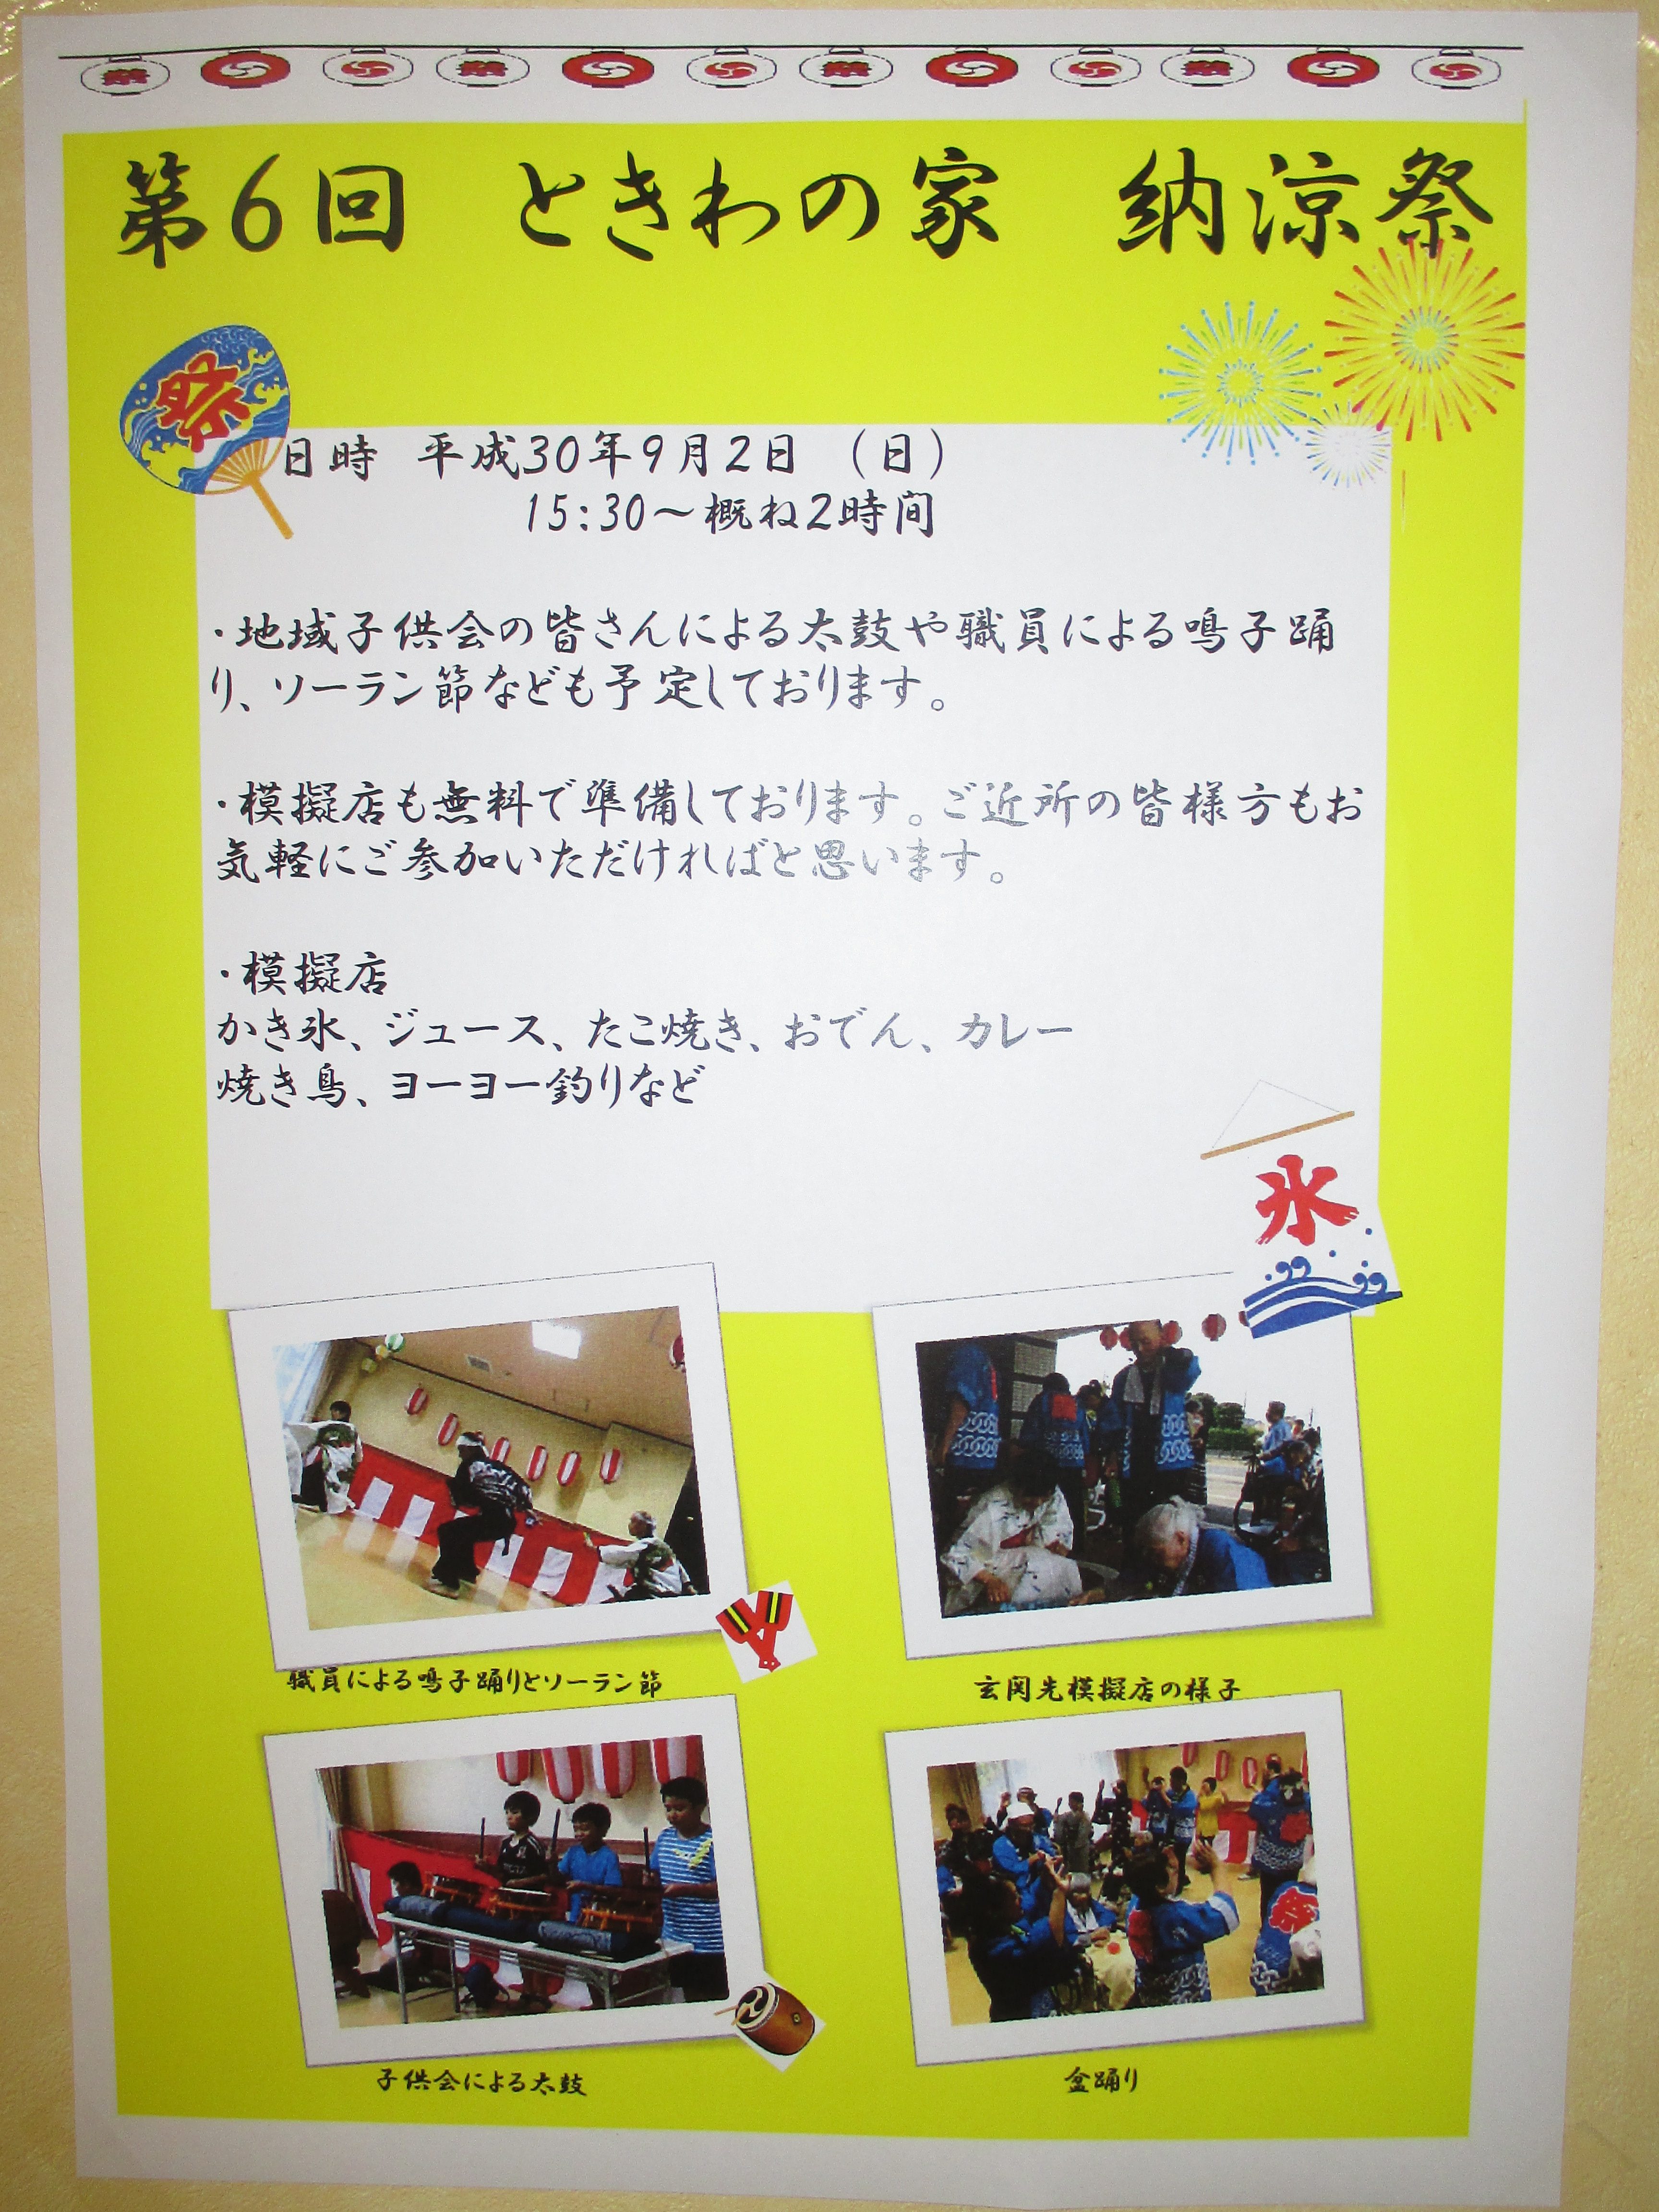 第6回 ときわの家 納涼祭
祭
日時 平成30年9月2日 (日)
15:30〜概ね2時間
・地域子供会の皆さんによる太鼓や職員による鳴子踊
り、ソーラン節なども予定しております。
・模擬店も無料で準備しております。ご近所の皆様方もお
気軽にご参加いただければと思います。
・模擬店
かき氷、ジュース、たこ焼き、おでん、カレー
焼き鳥、ヨーヨー釣りなど
氷
職員による鳴子踊りとソーラン節
玄関先模擬店の様子
祭
子供会による太鼓
盆踊り